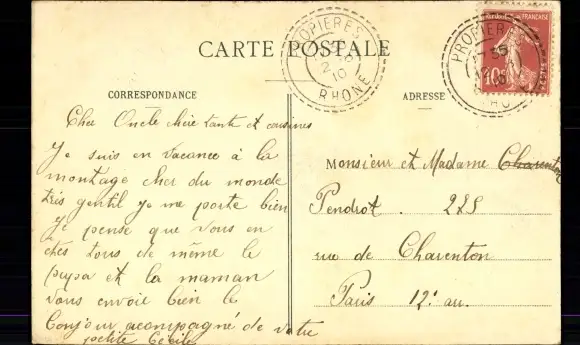 CARTE POSTALE
PROPIERES
RHONE
PROPIERES
RHO
REPUBLIQUE FRANÇAISE
10
POSTES
CORRESPONDANCE
ADRESSE
Cher Oncle chère tante et cousines
Je suis en vacance à la
montage cher du monde
très gentil je me porte bien
Je pense que vous en
êtes tous de même le
papa et la maman
vous envoie bien le
Bonjour acompagné de votre
petite Cécile
Monsieur et Madame Charenton
Pendrot . 225
rue de Charenton
Paris 12e ar.